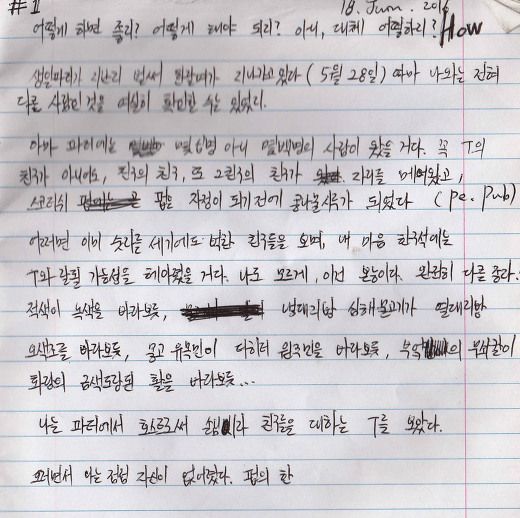 #1
18. Jun. 2016
어떻게 하면 좋리? 어떻게 해야 되리? 아니, 대체 어떨하리? How
생일파티가 지난지 벌써 한달여가 지나가고 있다 (5월 28일) 따마 나와는 전혀
다른 사람인 것을 여실히 확인할 수는 있었지.
아마 파티에는 몇십명 아니 몇백명의 사람이 왔을 거다. 꼭 T의
친구가 아니어도, 친구의 친구, 또 그친구의 친구가 자리를 메어왔고,
스코티쉬 펍은 자정이 되기전에 콩나물시루가 되었다 (pe. Pub)
어쩌면 이미 숫자를 세기에도 벅찬 친구들을 보며, 내 마음 한구석에는
T와 잘될 가능성을 헤아렸을 거다. 나도 모르게, 이건 본능이다. 완전히 다른 종자.
적색이 녹색을 바라보듯, 냉대지방 심해물고기가 열대지방
오색조를 바라보듯, 몽고 유목민이 타히티 원주민을 바라보듯, 부엌의 무쇠칼이
화랑의 금색도장된 활을 바라보듯...
나는 파티에서 호스트로써 손님이라 친구들을 대하는 T를 보았다.
그러면서 나는 점점 자신이 없어졌다. 펍의 한